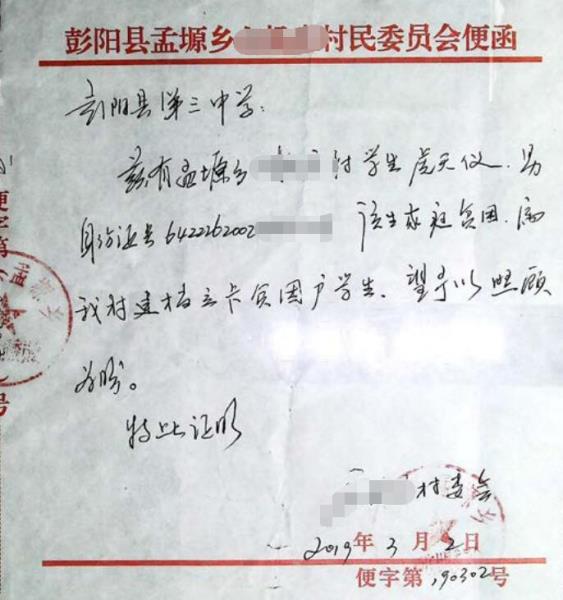 彭阳县孟塬乡 村民委员会便函
彭阳县第三中学:
兹有孟塬乡 村学生虎天仪、男
身份证号6422262002 该生家庭贫困,属
我村建档立卡贫困户学生、望予以照顾
为盼。
特此证明
村委会
2019年3月2日
便字第190302号
便字第
号
孟塬乡